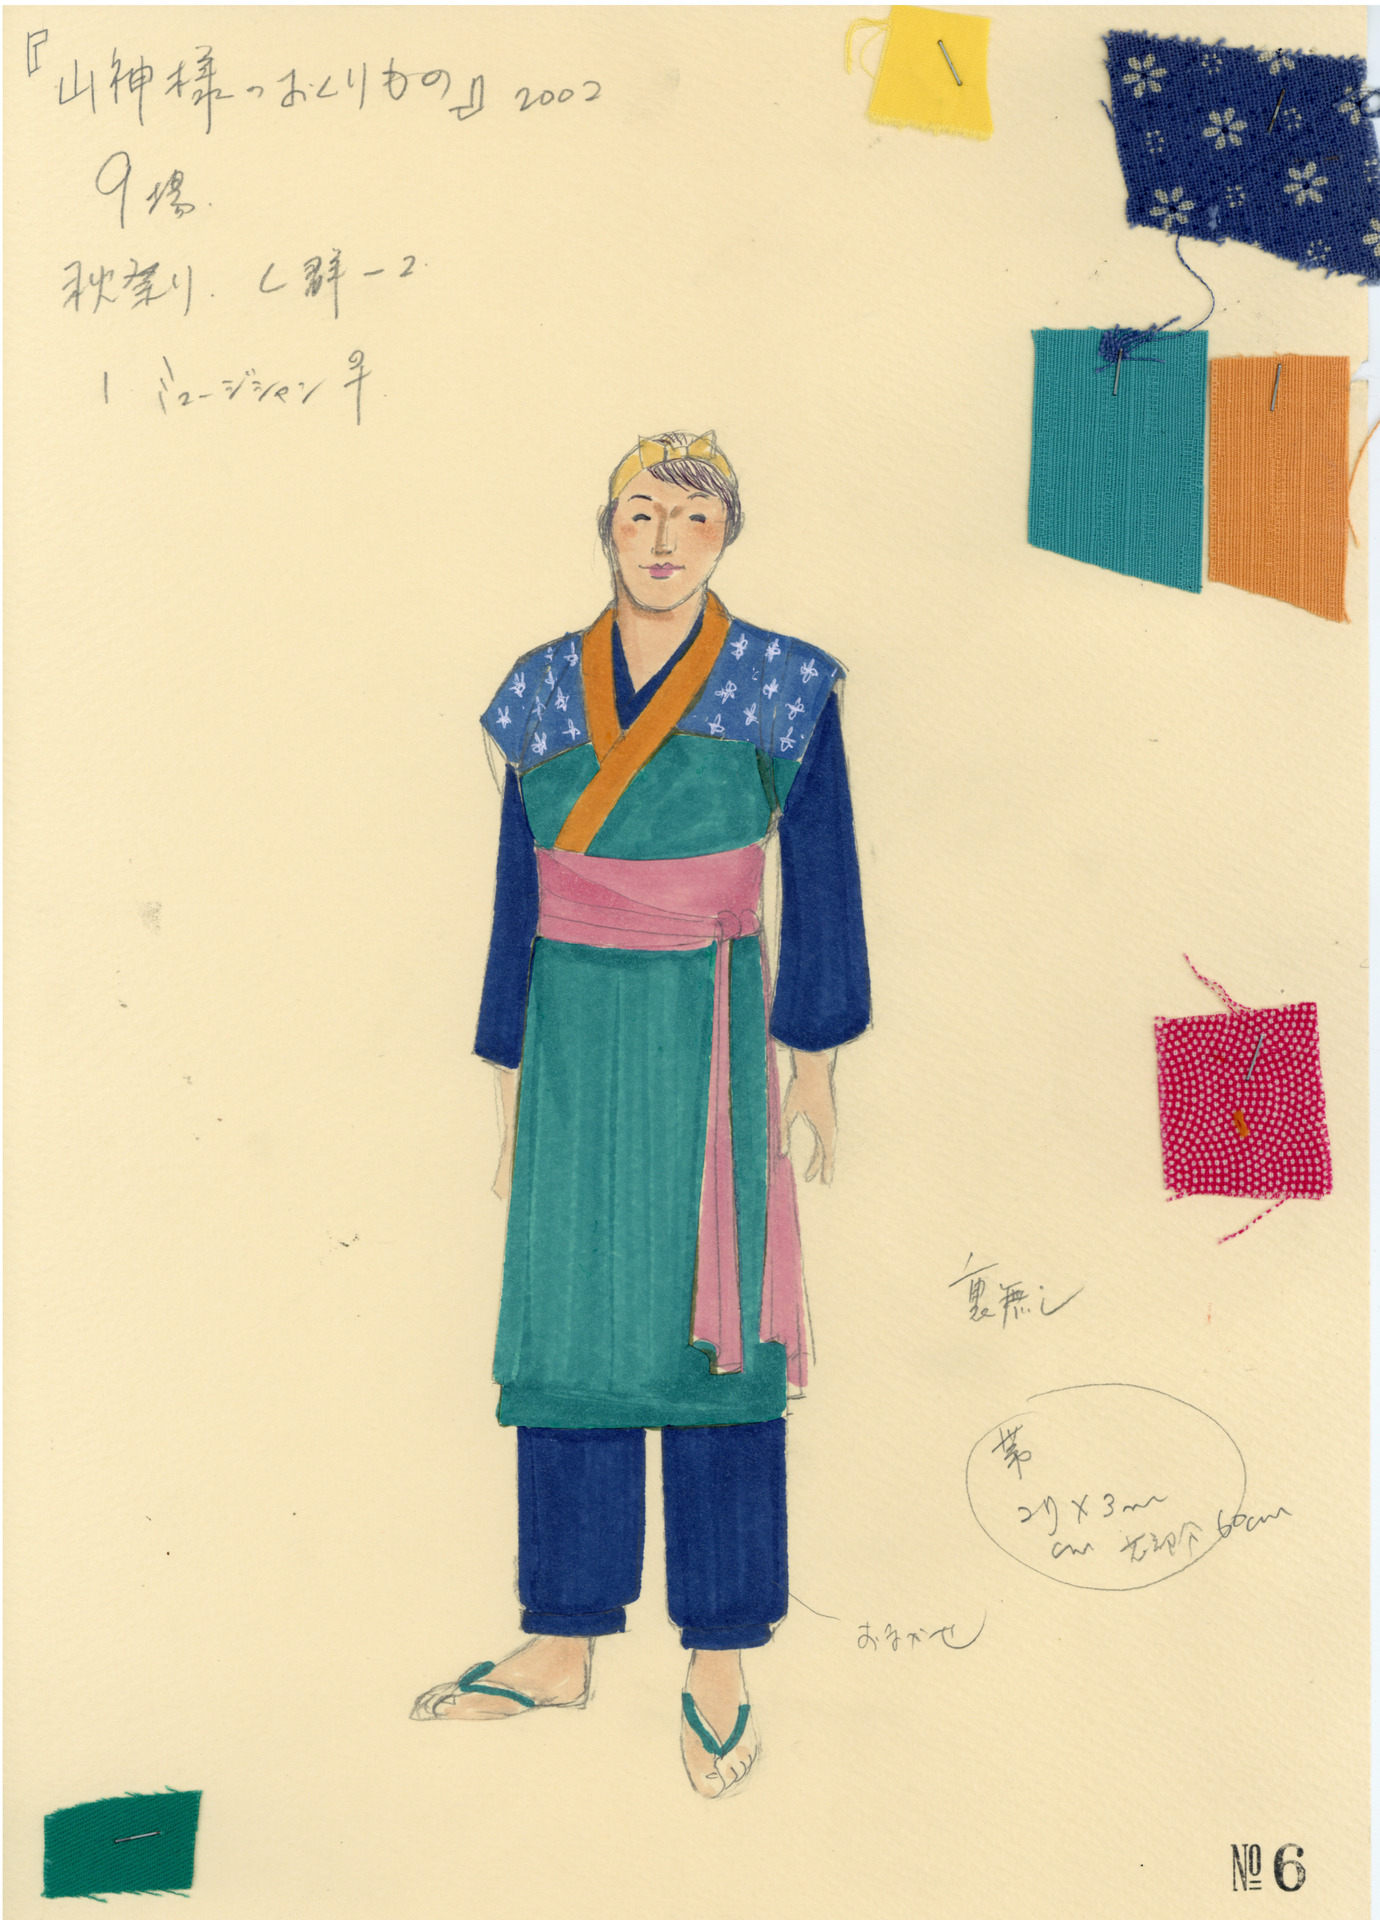 『山神様のおくりもの』 2002
9場.
秋祭り. く群-2.
1 ミュージシャン
裏無し
帯
×3m
cm 60cm
おまかせ
№6